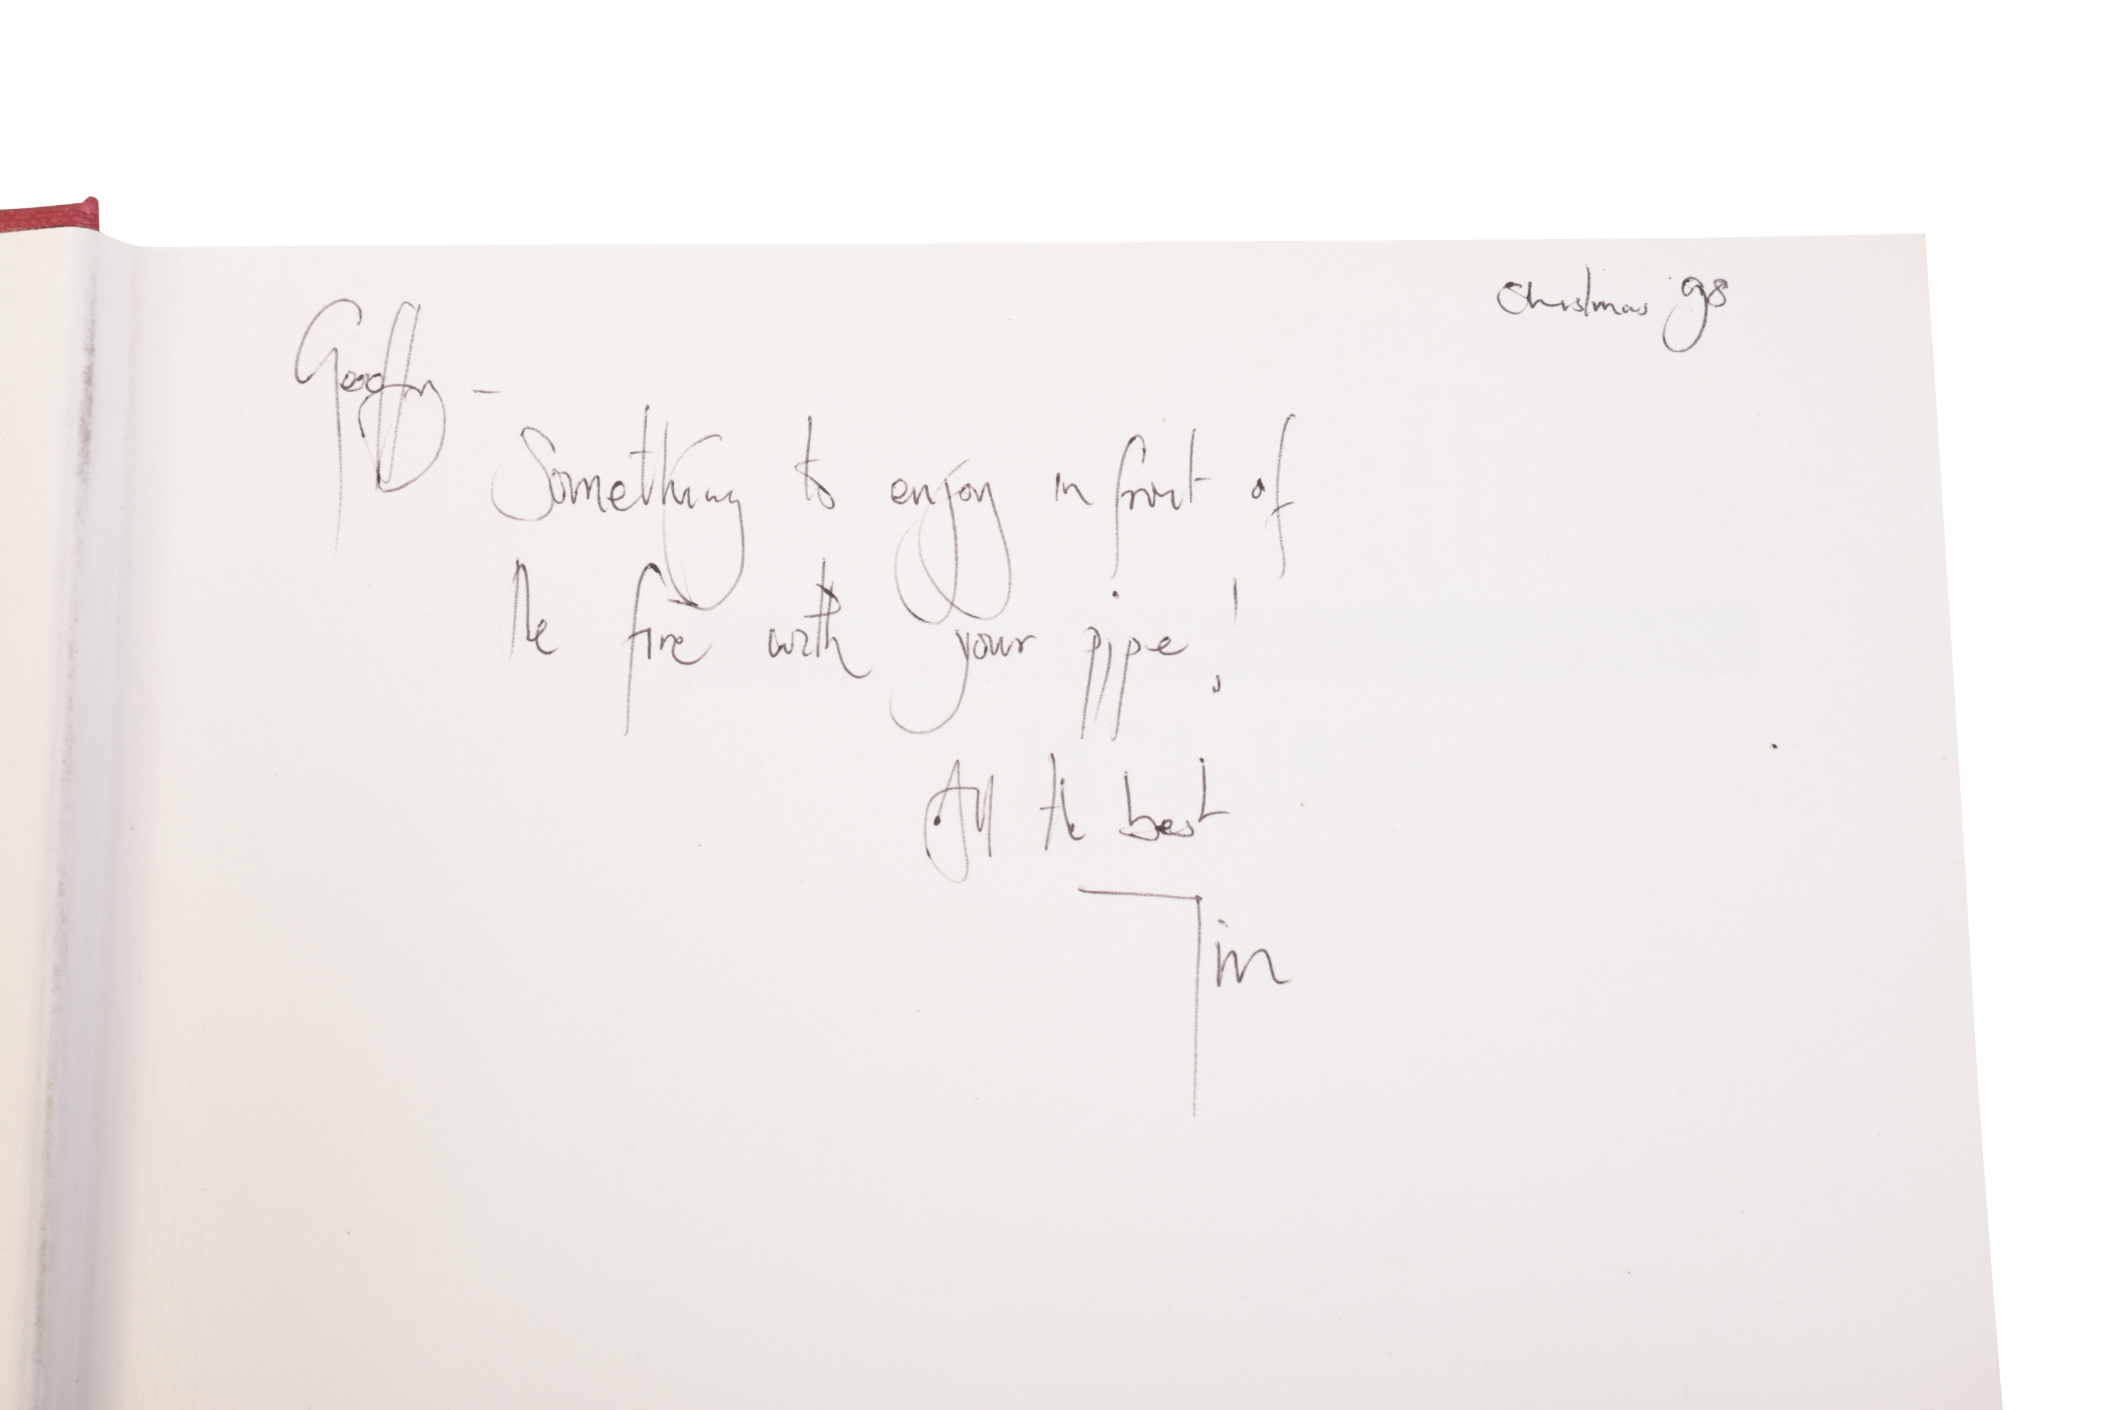 Christmas '98
Geoffrey -
Something to enjoy in front of
the fire with your pipe!
All the best
Tim